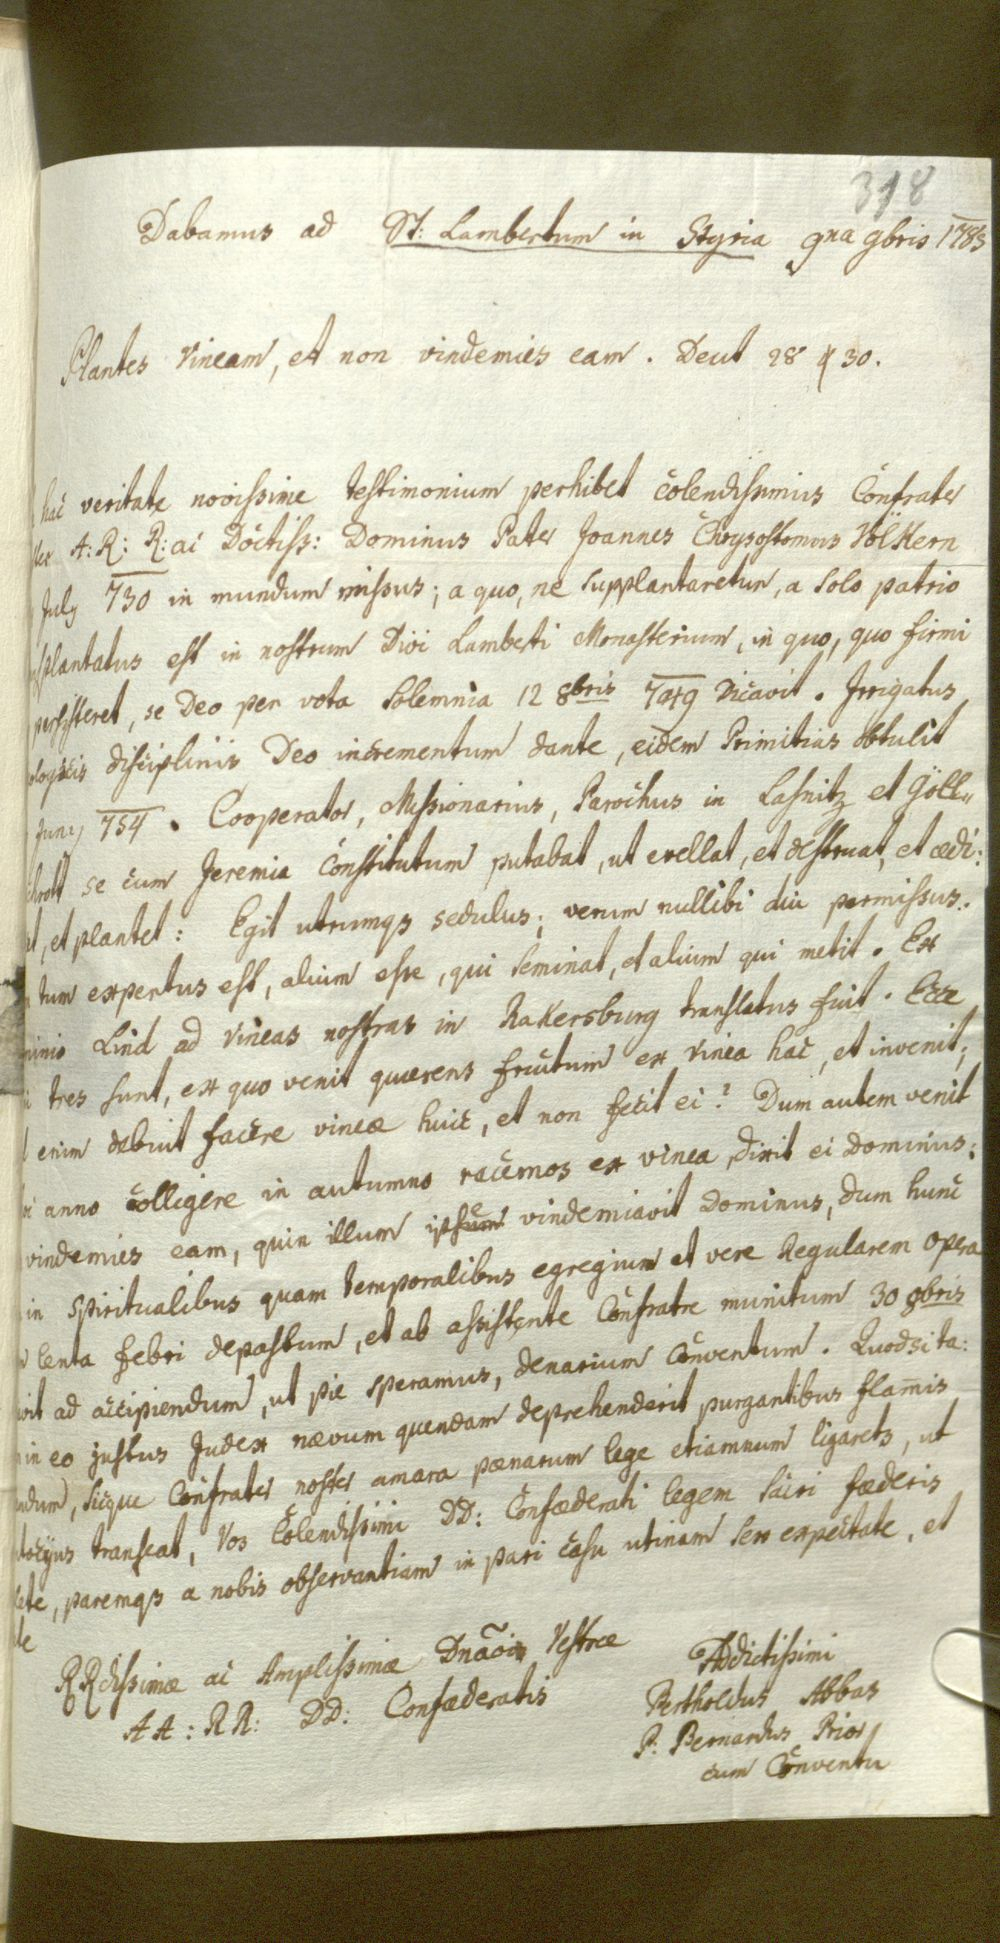 318
Dabamus ad St: Lambertum in Styria 9na 9bris 1783
Plantes vineam, et non vindemies eam. Deut 28 ℣ 30.
hac veritate novissime testimonium perhibet colendissimus Confrater
A: R: R: ac Doctiss: Dominus Pater Joannes Chrysostomus Völkern
July 730 in mundum missus; a quo, ne supplantaretur, a solo patrio
splantatus est in nostrum Divi Lamberti Monasterium, in quo, quo firmi
persisteret, se Deo per vota solemnia 12 8bris 749 dicavit. Irrigatus
ologicis disciplinis Deo incrementum dante, eidem Primitias obtulit
Juny 754. Cooperator, Missionarius, Parochus in Lasnitz et Göll„
se cum Jeremia Constitutum putabat, ut evellat, et destruat, et ædi:
et, et plantet: Egit utrumqs sedulus; verum nullibi diu permissus.
tum expertus est, alium esse, qui seminat, et alium qui metit. Ex
minio Lind ad vineas nostras in Rakersburg translatus fuit. Ecce
tres sunt, ex quo venit quærens fructum ex vinea hac, et invenit;
enim debuit facere vineæ huic, et non fecit ei? Dum autem venit
anno colligere in autumno racemos ex vinea, dixit ei Dominus:
vindemies eam, quin illum ipsum vindemiavit Dominus, dum hunc
in spiritualibus quam temporalibus egregium et vere Regularem opera
lenta febri depastum, et ab assistente Confratre munitum 30 9bris
vit ad accipiendum, ut pie speramus, denarium conventum. Quodsi ta:
in eo justus Judex nævum quendam deprehenderit purgantibus flam̄is
ndum, sicque Confrater noster amara pænarum lege etiamnum ligaretr, ut
ocyus transeat, Vos Colendissimi DD: Confæderati legem sacri fæderis
lete, paremqs a nobis observantiam in pari casu utinam sero expectate, et
te
RRdissimæ ac Amplissimæ Dnāōis Vestræ
AA: RR: DD: Confæderatis
Addictissimi
Bertholdus Abbas
P: Bernardus Prior
cum Conventu